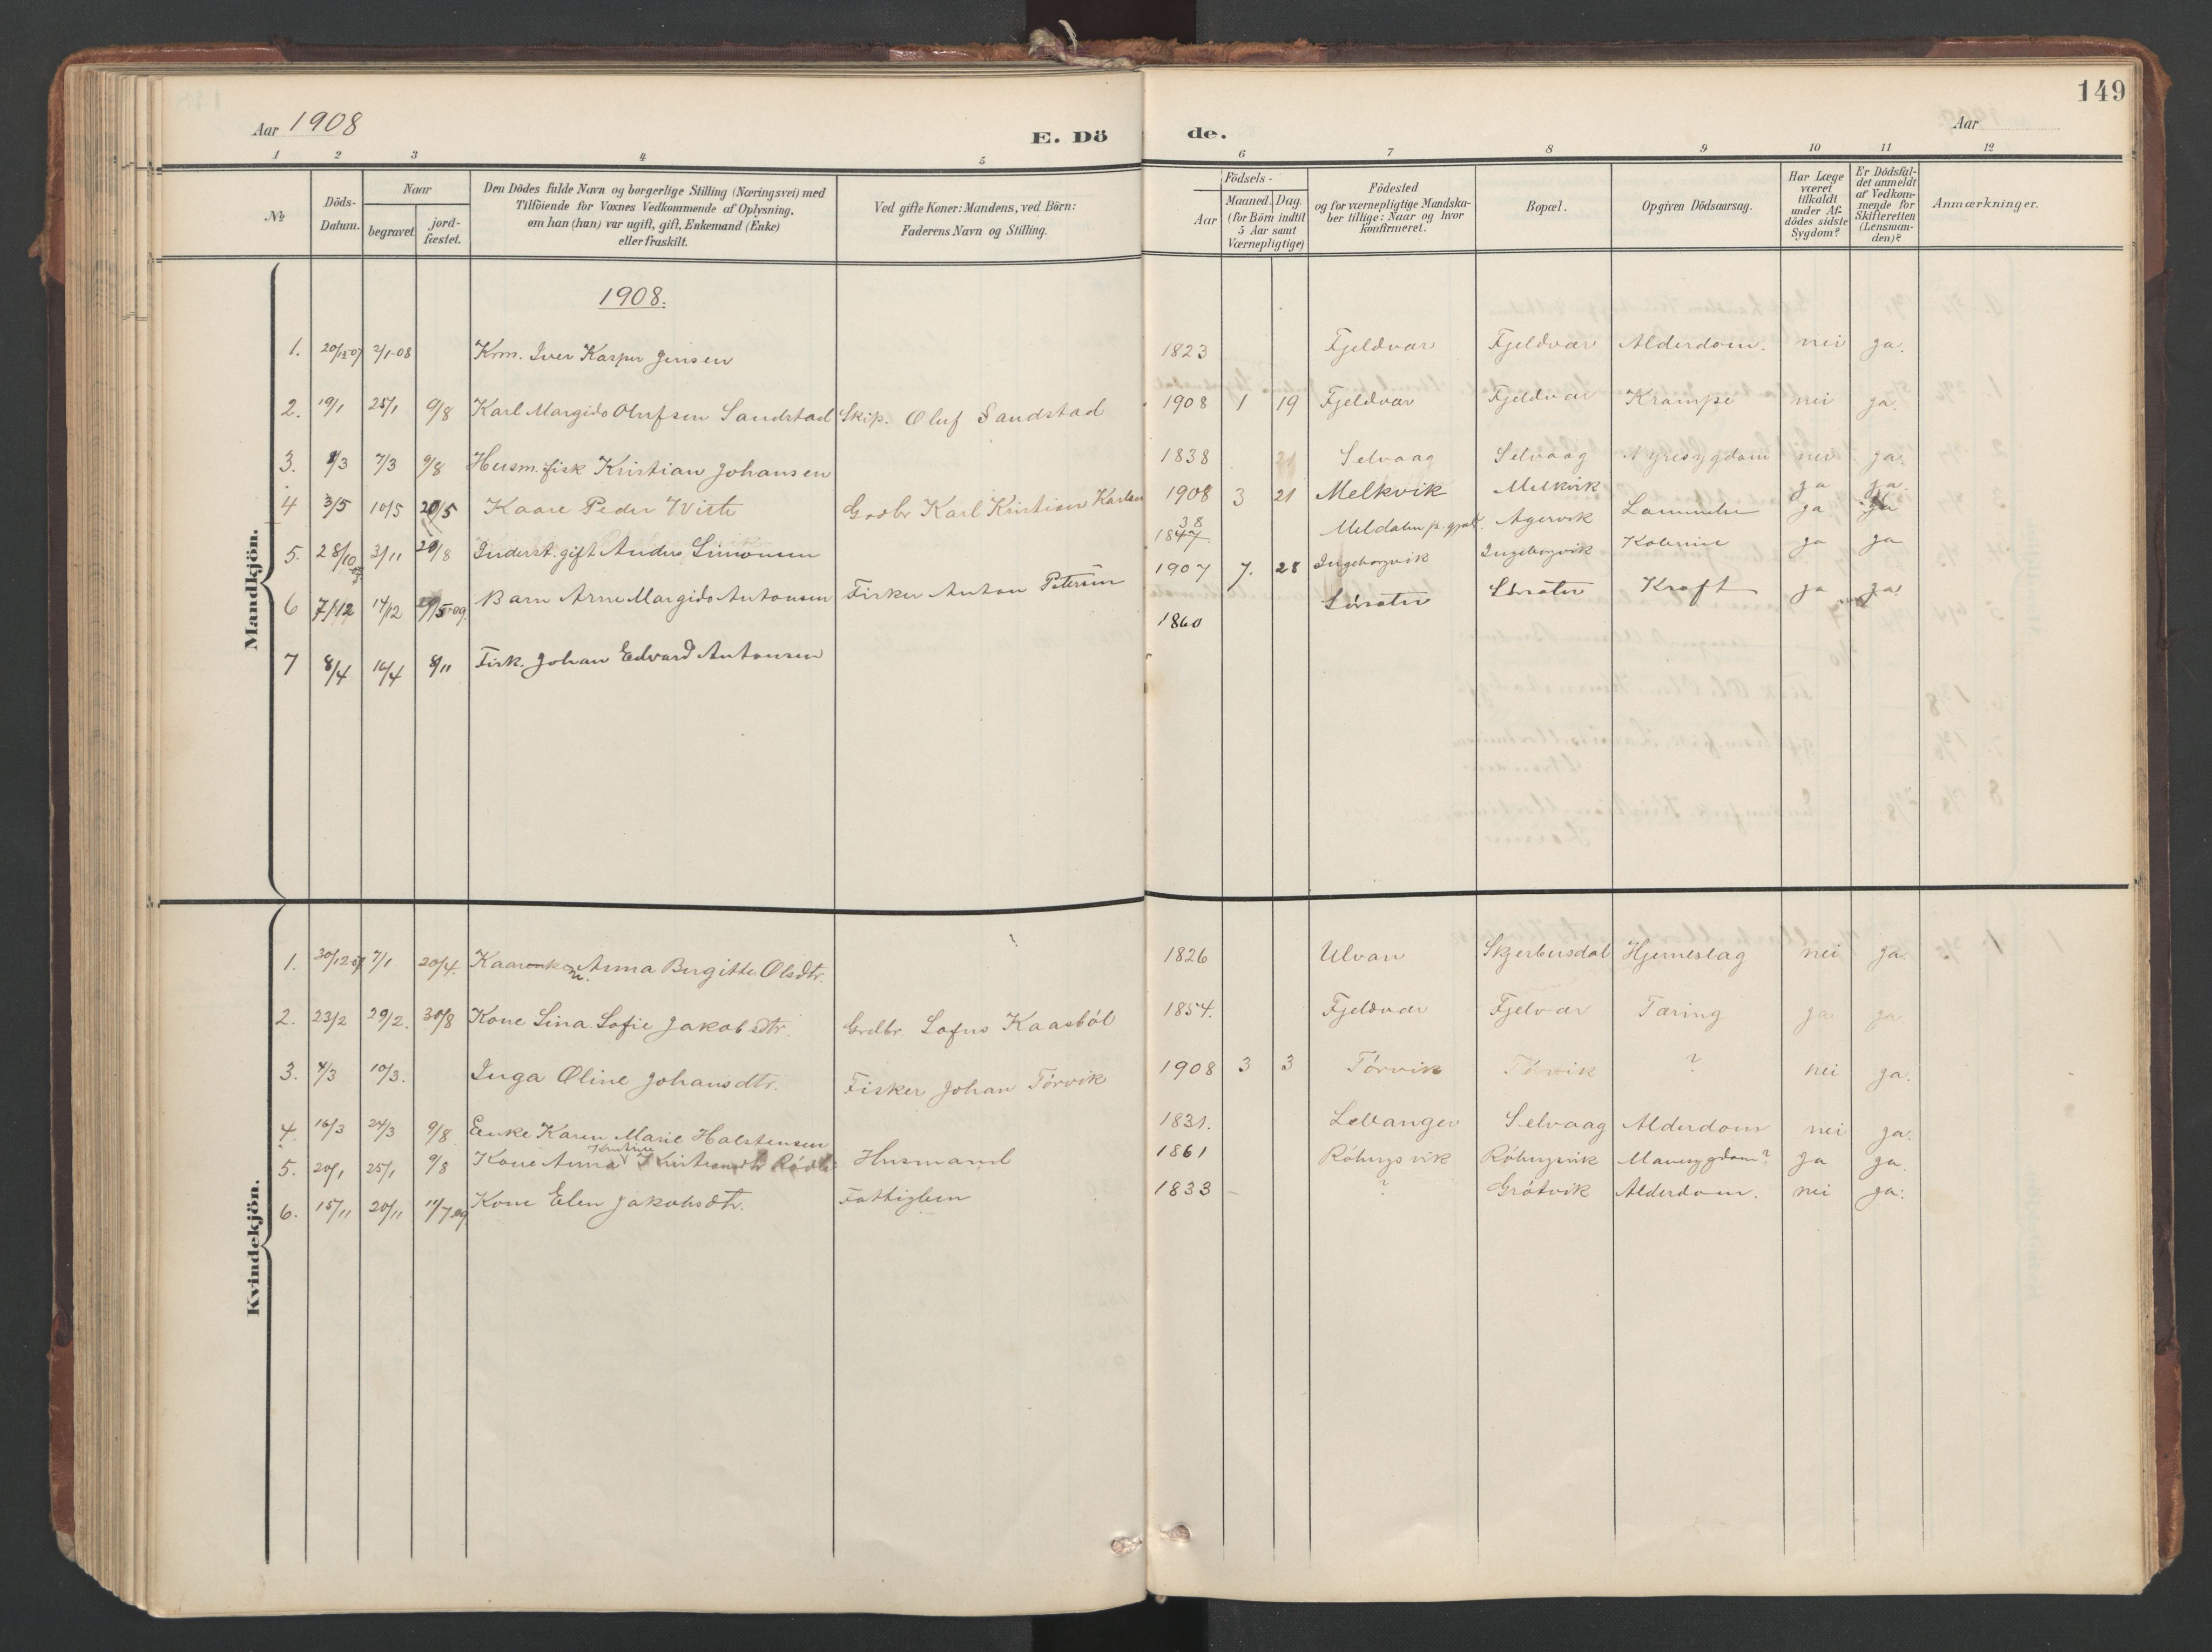 149
Aar 1908
E. Dö de.
Aar
1 2 3 4 5 6 7 8 9 10 11 12
№
Döds-Datum.
Naar
begravet.
jord-fæstet.
Den Dödes fulde Navn og borgerlige Stilling (Næringsvei) med
Tilföiende for Voxnes Vedkommende af Oplysning,
om han (hun) var ugift, gift, Enkemand (Enke)
eller fraskilt.
Ved gifte Koner: Mandens, ved Börn:
Faderens Navn og Stilling.
Födsels-
Aar
Maaned. Dag.
(for Börn indtil
5 Aar samt
Værnepligtige)
Födested
og for værnepligtige Mandska-
ber tillige: Naar og hvor
konfirmeret.
Bopæl.
Opgiven Dödsaarsag.
Har Læge
været
tilkaldt
under Af-
dödes sidste
Sygdom?
Er Dödsfal-
det anmeldt
af Vedkom-
mende for
Skifteretten
(Lensman-
den)?
Anmærkninger.
Mandkjön.
1908.
1. 20/12-07 2/1-08 Krm. Iver Kasper Jensen 1823 Fjeldvær Fjeldvær Alderdom. nei ja.
2. 19/1 25/1 9/8 Karl Margido Olufsen Sandstad Skip. Oluf Sandstad 1908 1 19 Fjeldvær Fjeldvær Krampe nei ja.
3. 1/3 7/3 9/8 Husm. fisk Kristian Johansen 1838 21 Selvaag Selvaag Nyresygdom nei ja.
4 3/5 10/5 20/5 Kaare Peder Wiste Grdbr Karl Kristian Karlsen 1908 3 21 Melkvik Melkvik ja ja.
5. 28/10 3/11 29/8 Inderst. gift Anders Simonsen 1847 38 Meldalen p. gjald. Agervik Lammelse ja ja
6 7/12 14/12 29/5-09. Barn Arne Margido Antonsen Fisker Anton Petersen 1907 7. 28 Ingeborgvik Ingeborgvik Kolerine ja ja
7 8/4 16/4 8/11 Fisk. Johan Edvard Antonsen 1860 Sörsæter Sörsæter Kræft ja ja.
Kvindekjön.
1. 30/12-07 7/1 20/4. Kaarenke Anna Bergitte Olsdtr. 1826 Ulvan Skjerbusdal Hjerneslag nei ja.
2. 23/2 29/2. 30/8 Kone Lina Sofie Jakobsdtr. Grdbr. Lofus Kaasböl 1854. Fjeldvær Fjelvær Tæring ja ja
3. 4/3 10/3. Inga Oline Johansdtr. Fisker Johan Törvik 1908 3 3 Törvik Törvik ? nei ja.
4. 16/3 24/3 9/8 Enke Karen Marie Halstensen 1831. Levanger Selvaag Alderdom nei ja.
Kristine
5. 20/1 25/1 9/8 Kone Anna Kristiansdtr Husmand 1861 Röbergsvik Röbergsvik Mavesygdom? ja ja.
6. 15/11 20/11 11/7.09 Kone Elen Jakobsdtr. Fattiglem 1833 – ? Grötvik Alderdom. nei ja.